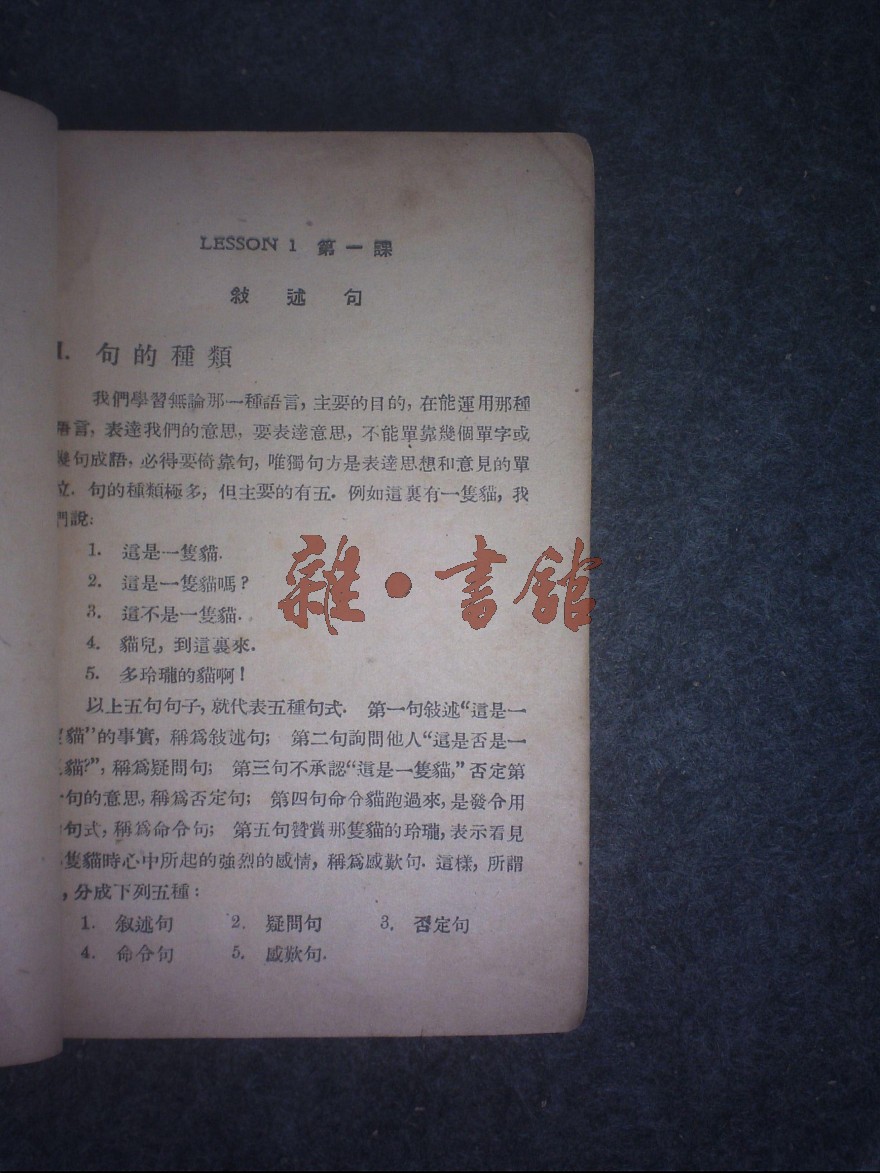 LESSON 1 第一課
敍述句
1. 句的種類
我們學習無論那一種語言, 主要的目的, 在能運用那種
語言, 表達我們的意思, 要表達意思, 不能單靠幾個單字或
幾句成語, 必得要倚靠句, 唯獨句方是表達思想和意見的單
位. 句的種類極多, 但主要的有五. 例如這裏有一隻貓, 我
們說:
1. 這是一隻貓.
2. 這是一隻貓嗎?
3. 這不是一隻貓.
4. 貓兒, 到這裏來.
5. 多玲瓏的貓啊!
以上五句句子, 就代表五種句式. 第一句敍述“這是一
隻貓”的事實, 稱爲敍述句; 第二句詢問他人“這是否是一
隻貓?”, 稱爲疑問句; 第三句不承認“這是一隻貓,”否定第
一句的意思, 稱爲否定句; 第四句命令貓跑過來, 是發令用
句式, 稱爲命令句; 第五句贊賞那隻貓的玲瓏, 表示看見
隻貓時心中所起的強烈的感情, 稱爲感歎句. 這樣, 所謂
, 分成下列五種:
1. 叙述句 2. 疑問句 3. 否定句
4. 命令句 5. 感歎句.
雜·書館